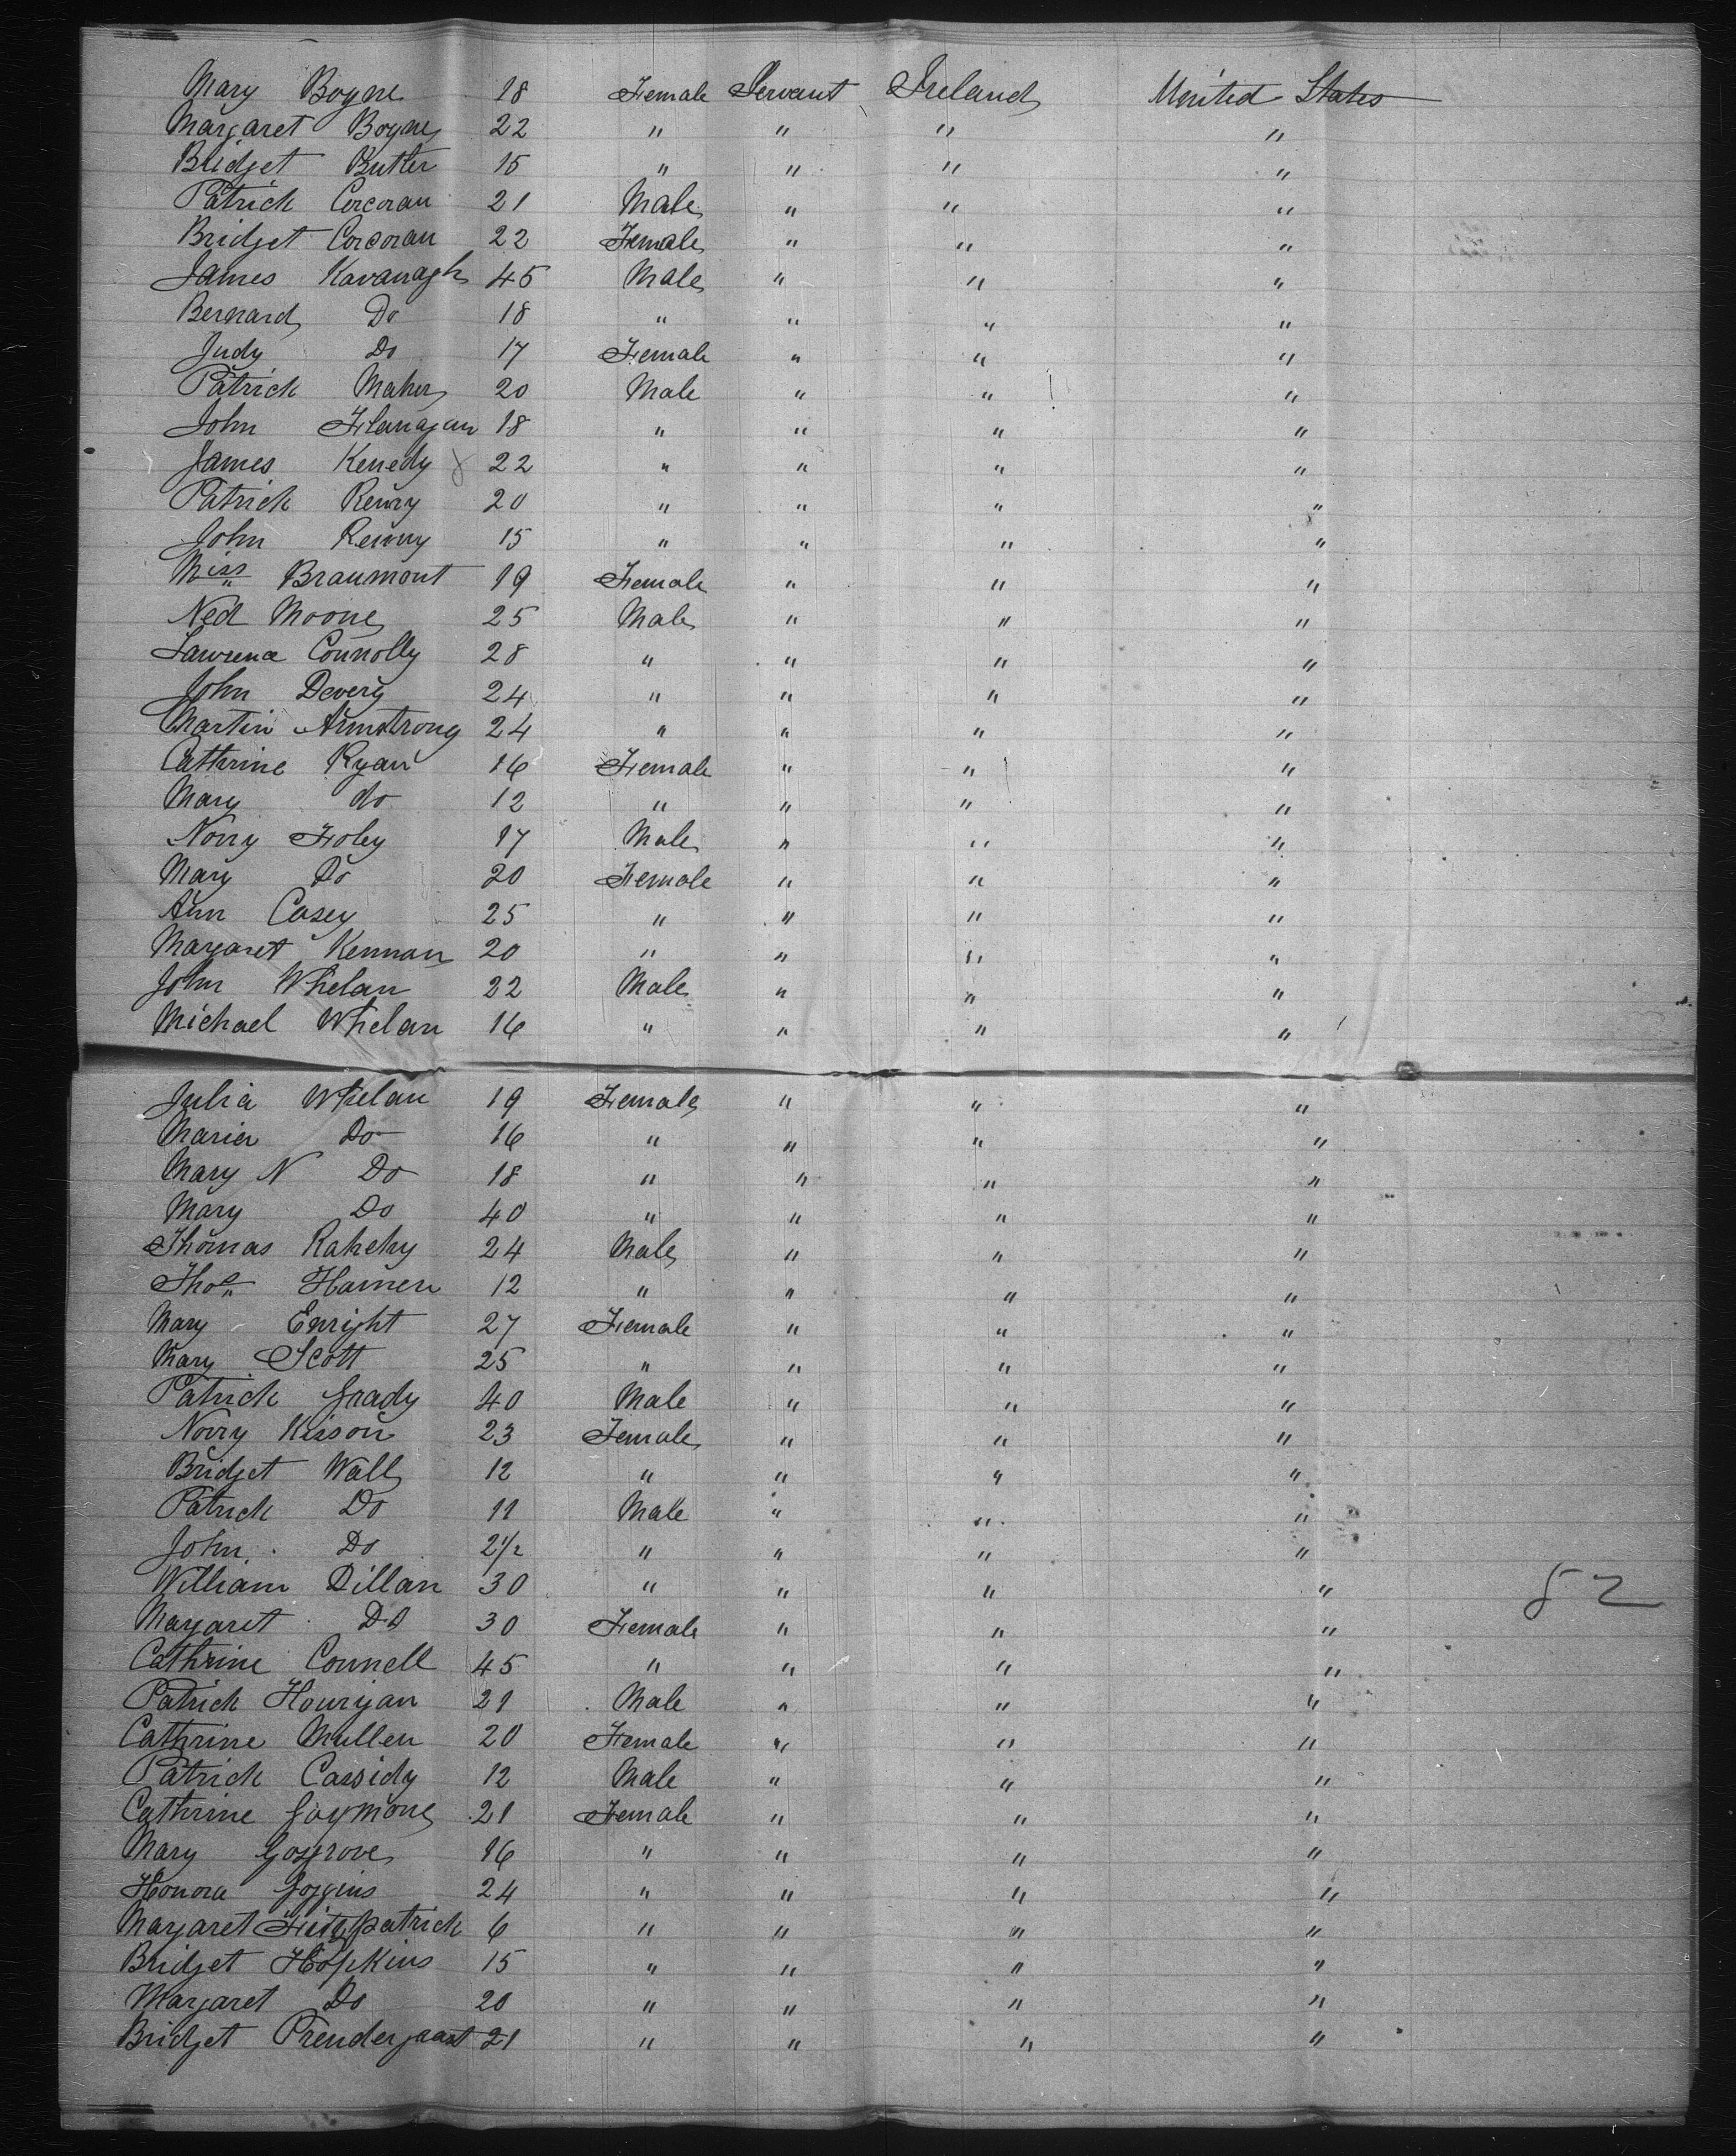 Mary Boyne 18 Female Servant Ireland United States
Margaret Boyne 22 " " " "
Bridget Butler 15 " " " "
Patrick Corcoran 21 Male " " "
Bridget Corcoran 22 Female " " "
James Kavanagh 45 Male " " "
Bernard Do 18 " " " "
Judy Do 17 Female " " "
Patrick Maher 20 Male " " "
John Flanagan 18 " " " "
James Kenedy 22 " " " "
Patrick 20 " " " "
John 15 " " " "
Miss Braumont 19 Female " " "
Ned Moone 25 Male " " "
Lawrence Connolly 28 " " " "
John Devery 24 " " " "
Martin Armstrong 24 " " " "
Cathrine Ryan 16 Female " " "
Mary do 12 " " " "
Norry Foley 17 Male " " "
Mary Do 20 Female " " "
Ann Casey 25 " " " "
Margaret Kennan 20 " " " "
John Whelan 22 Male " " "
Michael Whelan 16 " " " "
Julia Whelan 19 Female " " "
Maria Do 16 " " " "
Mary N Do 18 " " " "
Mary Do 40 " " " "
Thomas 24 Male " " "
Thos Hamen 12 " " " "
Mary Enright 27 Female " " "
Mary Scott 25 " " " "
Patrick Grady 40 Male " " "
Norry Kisson 23 Female " " "
Bridget Wall 12 " " " "
Patrick Do 11 Male " " "
John Do 2½ " " " "
William Dillan 30 " " " " 82
Margaret Do 30 Female " " "
Cathrine Connell 45 " " " "
Patrick Hourigan 21 Male " " "
Cathrine Mullen 20 Female " " "
Patrick Cassidy 12 Male " " "
Cathrine 21 Female " " "
Mary Gosgrove 16 " " " "
Honora Goggins 24 " " " "
Margaret Fitzpatrick 6 " " " "
Bridget Hopkins 15 " " " "
Margaret Do 20 " " " "
Bridget Prendergaast 21 " " " "